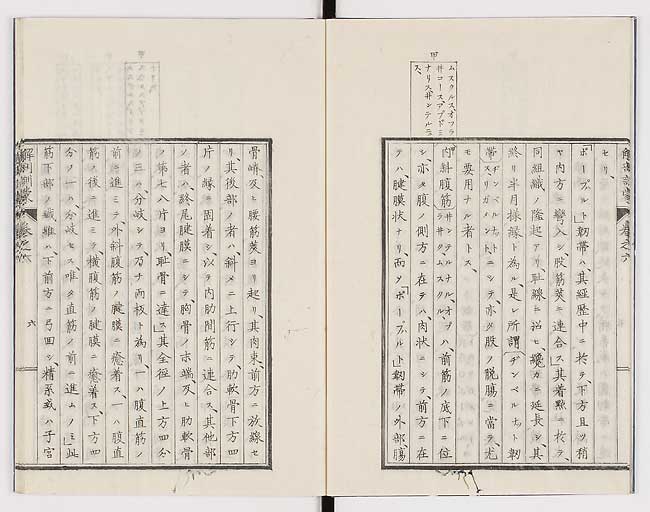 甲
ムスクルスオフラ
井コースアブドミ
ナリス井ンテルニュ
ス
セリ
「ポープル」ト韌帶ハ其経歴中ニ於テ下方且ツ稍
ヤ内方ニ彎入シ股筋莢ニ連合ス其着㸃ニ於テ
同組織ノ隆起アリ耻線ニ沿ヒ纔カニ延長シ其
終リ半月様緣ト為ル是レ所謂「ヂンベルナット韌
帶」ニシテ亦タ股ノ脱膓ニ當テ尤
モ要用ナル者トス
内斜腹筋ハ前筋ノ底下ニ位
シ亦タ腹ノ側方ニ在テハ肉状ニシテ前方ニ在
テハ腱膜状ナリ而シ「ポープル」ト韌帶ノ外部膓
解剖訓蒙
巻之六
骨嵴及ヒ腰筋莢ヨリ起リ其肉束前方ニ放線セ
リ其後部ノ者ハ斜メニ上行シテ肋軟骨下方四
片ノ緣ニ固着シ以テ内肋間筋ニ連合ス其他部
ノ者ハ終尾腱膜ニシテ胸骨ノ末端及ヒ肋軟骨
ノ第七八片ヨリ耻骨ニ達ス其全徑ノ上方四分
ノ三ハ分岐シテ乃チ両板ト為リ一ハ腹直筋ノ
前ニ進ミテ外斜腹筋ノ腱膜ニ癒着ス一ハ腹直
筋ノ後ニ進ミテ横腹筋ノ腱膜ニ癒着ス下方四
分ノ一ハ分岐セス唯タ直筋ノ前ニ進ムノミ此
筋下部ノ纎維ハ下前方ニ弓囬シ精系或ハ子宮
解剖訓蒙
巻之六
六